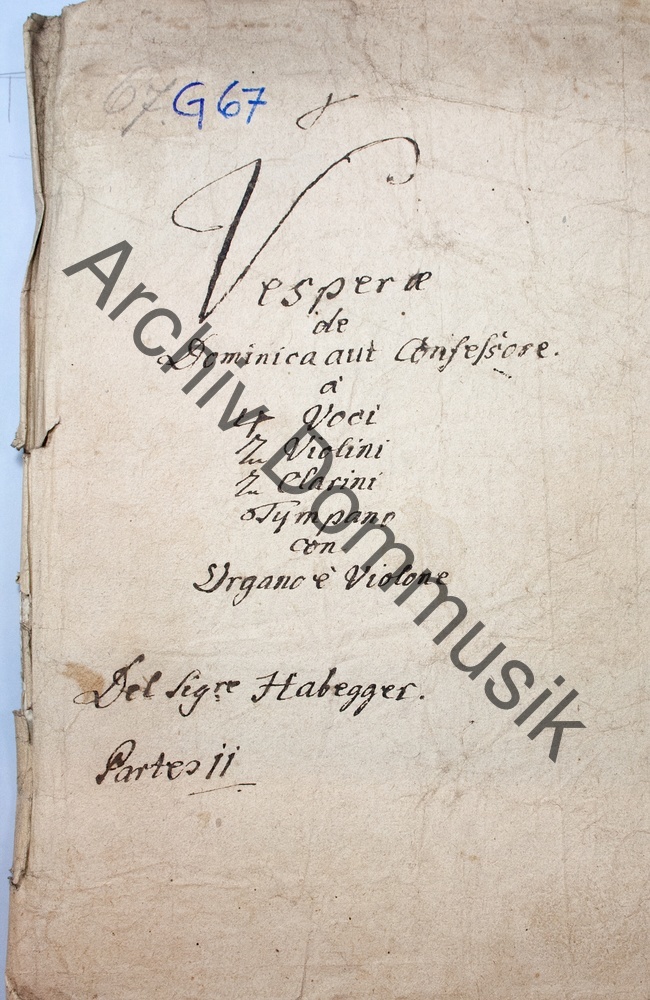 67. G 67
Vesperæ
de
Dominica aut Confessore.
à
4 Voci
2 Violini
2 Clarini
Tympano
con
Organo è Violone
Del Sigre Habegger.
Partes 11
Archiv Dommusik